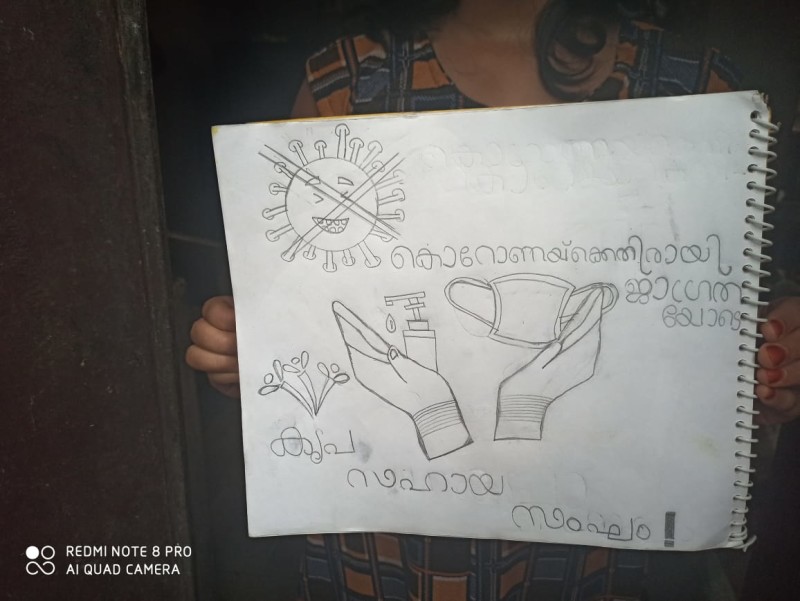 കൊറോണയ്ക്കെതിരായി
ജാഗ്രത
യോടെ
കൃപ
സഹായ
സംഘം !
REDMI NOTE 8 PRO
AI QUAD CAMERA